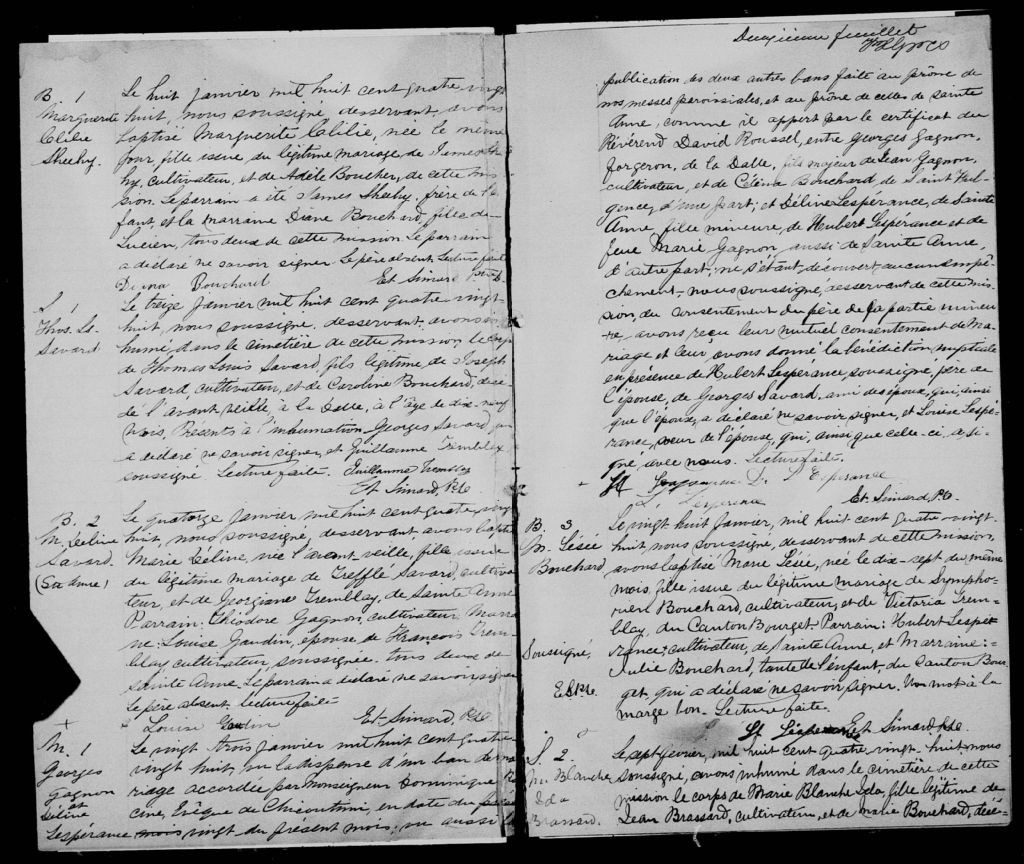 B. 1
Marguerite
Clélie
Sheehy.
Le huit janvier mil huit cent quatre vingt
huit, nous soussigné, desservant, avons
baptisé Marguerite Clélie, née le même
jour, fille issue du légitime mariage de James
hy, cultivateur, et de Adèle Boucher, de cette mis
sion. Le parrain a été James Sheehy, frère de l'
fant, et la marraine Diane Bouchard, fille de
Lucien, tous deux de cette mission. Le parrain
a déclaré ne savoir signer. Le père absent. Lecture faite
Diana Bouchard Et. Simard
S. 1
Thos. Ls.
Savard
Le treize janvier mil huit cent quatre vingt
huit, nous soussigné, desservant, avons
humé, dans le cimetière de cette mission le corps
de Thomas Louis Savard, fils légitime de Joseph
Savard, cultivateur, et de Caroline Bouchard, décé-
dé l'avant veille, à la Dalle, à l'âge de dix-neuf
mois. Présents à l'inhumation, Georges Savard, qui
a déclaré ne savoir signer, et Guillaume Tremblay
soussigné. Lecture faite. Guillaume Tremblay
Et. Simard, Ptr.
B. 2
M. Céline
Savard.
(Ste Anne)
Le quatorze janvier mil huit cent quatre, vingt
huit, nous soussigné, desservant, avons baptisé
Marie Céline, née l'avant veille, fille issue
du légitime mariage de Trefflé Savard, cultiva-
teur, et de Georgiane Tremblay, de Sainte Anne
Parrain: Théodore Gagnon, cultivateur, Marrai
ne: Louise Gaudin, épouse de François Trem-
blay, cultivateur, soussignée. tous deux de
Sainte Anne. Le parrain a déclaré ne savoir signer
Le père absent. Lecture faite
Louise Gaudin Et. Simard, Ptr.
+
M. 1
Georges
Gagnon
et
Déline
Lespérance
Le vingt trois janvier mil huit cent quatre
vingt huit, vu la dispense d'un ban de ma
riage accordée par Monseigneur Dominique
cine, Evêque de Chicoutimi, en date du
mois vingt du présent mois; vu aussi la
Deuxième feuillet
publication des deux autres bans faite au prône de
nos messes paroissiales, et au prône de celles de Sainte
Anne, comme il appert par le certificat du
Révérend David Roussel, entre Georges Gagnon,
forgeron, de la Dalle, fils majeur de Jean Gagnon,
cultivateur, et de Célina Bouchard, de Saint Ful-
gence, d'une part; et Déline Lespérance, de Sainte
Anne, fille mineure, de Hubert Lespérance et de
feue Marie Gagnon, aussi de Sainte Anne,
d'autre part; ne s'étant découvert aucun empê-
chement, nous soussigné, desservant de cette mis-
sion, du consentement du père de la partie mineu-
re, avons reçu leur mutuel consentement de ma-
riage et leur avons donné la bénédiction nuptiale
en présence de Hubert Lespérance, soussigné, père de
l'épouse, de Georges Savard, ami des époux, qui, ainsi
que l'époux, a déclaré ne savoir signer, et Louise Lespé-
rance, sœur de l'épouse, qui, ainsi que celle-ci, a si-
gné avec nous. Lecture faite.
D. L'Esperance
Et. Simard, Ptr.
B. 3
M. Lésée
Bouchard
Le vingt huit janvier, mil huit cent quatre-vingt-
huit, nous soussigné, desservant de cette mission,
avons baptisé Marie Lésée, née le dix-sept du même
mois, fille issue du légitime mariage de Sympho-
rien Bouchard, cultivateur, et de Victoria Trem-
blay, du Canton Bourget. Parrain: Hubert Lespé-
rance, cultivateur, de Sainte Anne, et Marraine:
Julie Bouchard, tante de l'enfant, du Canton Bour-
get, qui a déclaré ne savoir signer. Un mot à la
marge bon. Lecture faite.
Soussigné,
E. S. Ptr.
Et. Simard, Ptr.
S. 2.
M. Blanche
Ida
Brassard.
Le sept février, mil huit cent quatre vingt-huit, nous
soussigné, avons inhumé dans le cimetière de cette
mission le corps de Marie Blanche Ida, fille légitime de
Jean Brassard, cultivateur, et de Marie Bouchard, décé-